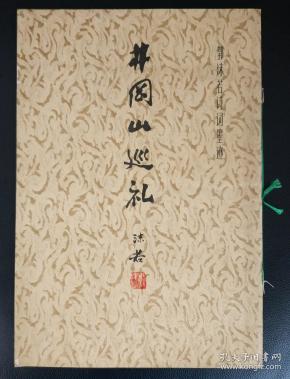 郭沫若诗词墨迹
井冈山巡礼
沫若
孔夫子旧书网